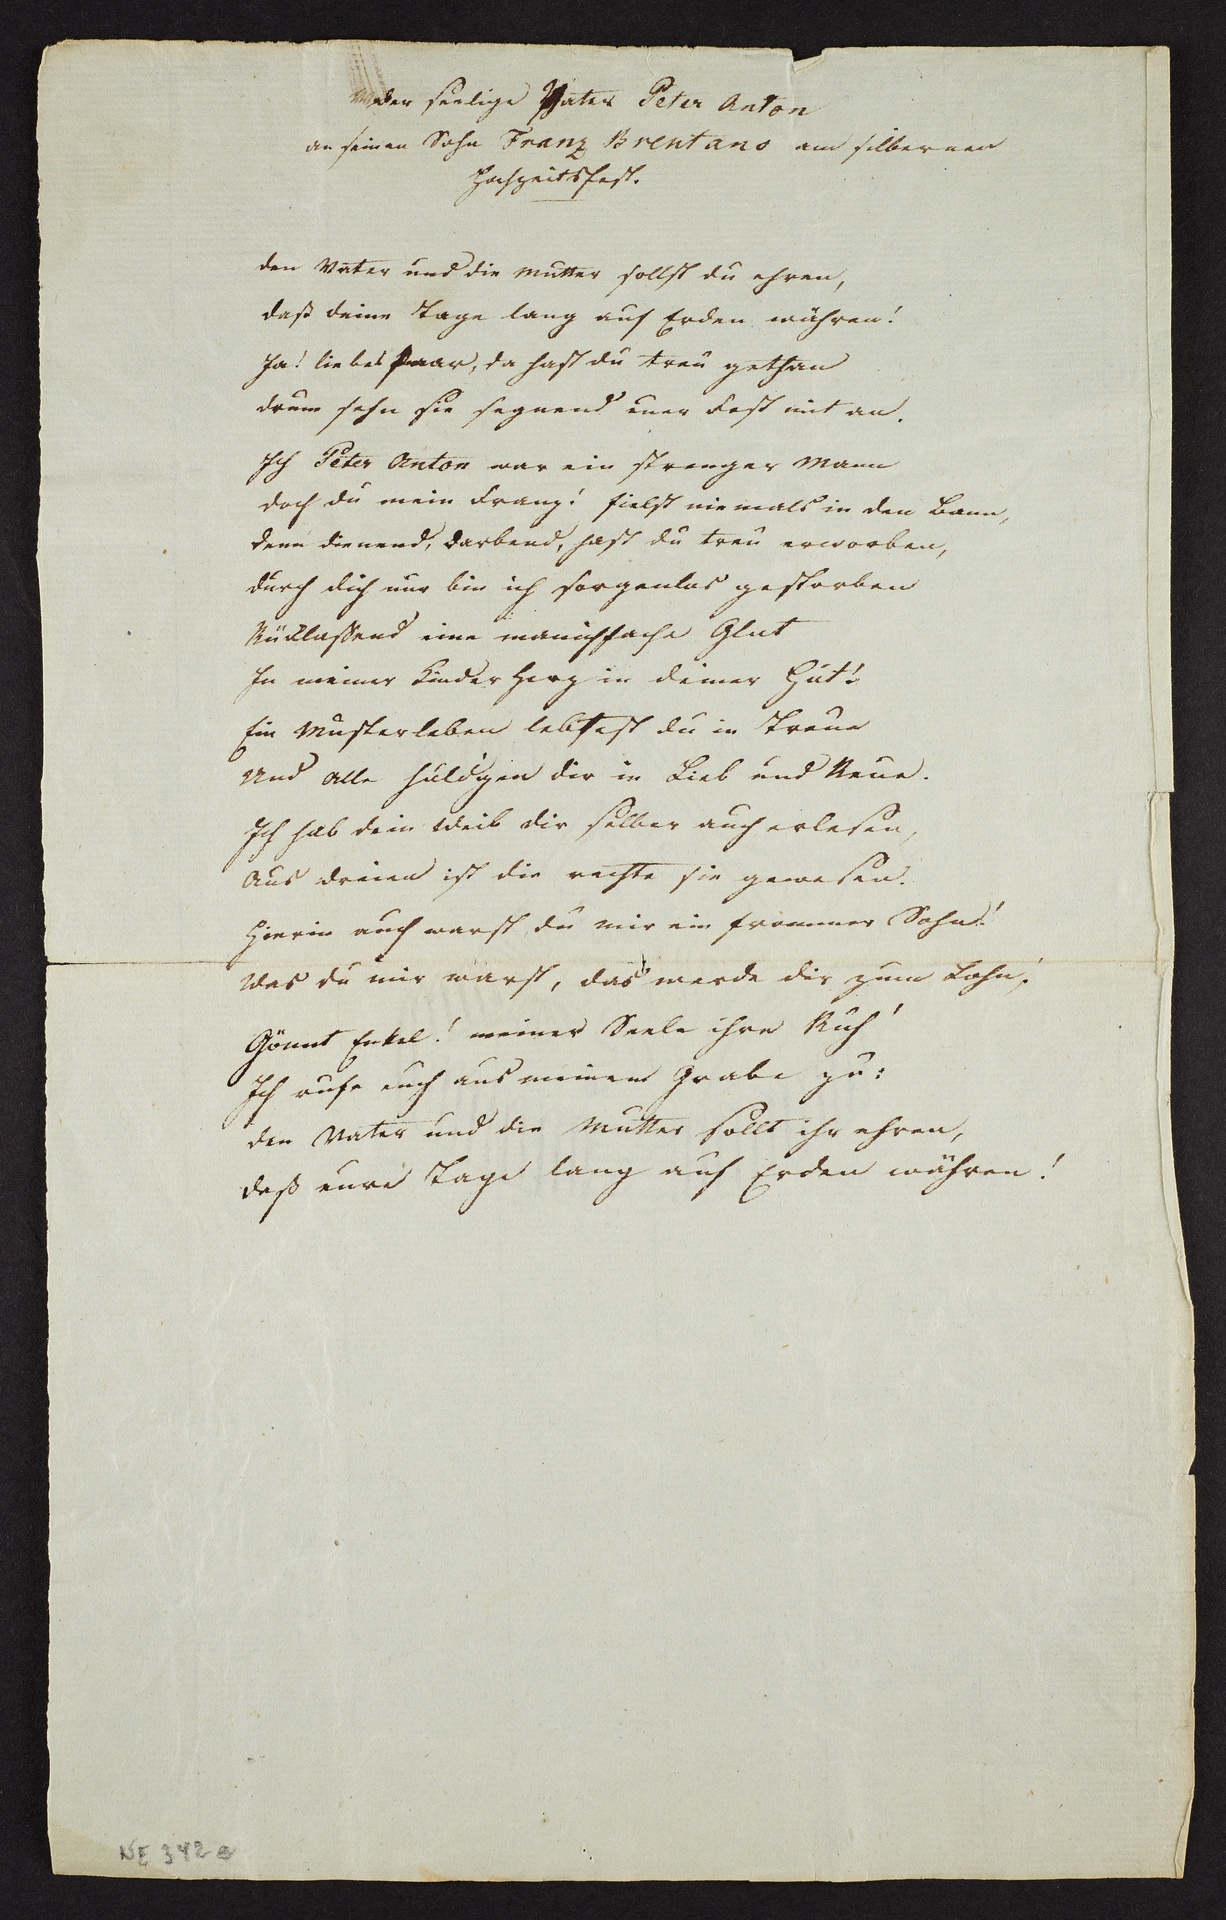 der seelige Vater Peter Anton
an seinen Sohn Franz Brentano am silbernen
Hochzeitsfest.
den Vater und die Mutter sollst du ehren,
daß deine Tage lang auf Erden währen!
Ja! liebes Paar, da hast du treu gethan
drum sehn sie segnend euer Fest mit an.
Ich Peter Anton war ein strenger Mann
doch du mein Franz! fielst niemals in den Bann,
denn dienend, darbend, hast du treu erworben,
durch dich nur bin ich sorgenlos gestorben
Rücklassend eine mannichfache Glut
In meiner Kinder Herz in deiner Hut!
Ein Musterleben lebtest du in Treue
Und Alle huldigen dir in Lieb und Reue.
Ich hab dein Weib dir selber auch erlesen,
Aus dreien ist die rechte sie gewesen.
Hierin auch warst du mir ein frommer Sohn!
Was du mir warst, das werde dir zum Lohn!
Gönnt Enkel! meiner Seele ihre Ruh!
Ich rufe euch aus meinem Grabe zu:
den Vater und die Mutter sollt ihr ehren,
daß eure Tage lang auf Erden währen!
NE 342